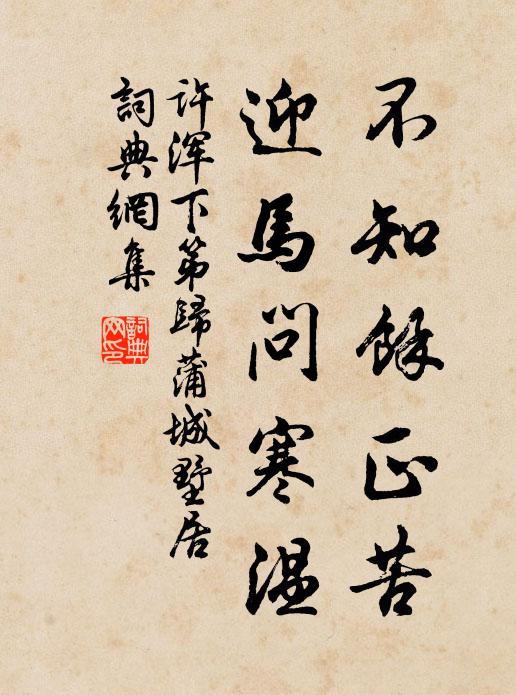 不知餘正苦
迎馬問寒温
許渾下第歸蒲城墅居
詞典網集
詞典网印